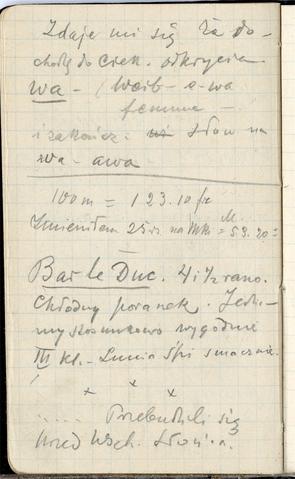 Zdaje mi się że do-
chodzę do ciek. odkrycia
wa - / Weib - e-wa
femme -
i zakończ. słów na
wa - awa
100 m = 123.10 fr
Zmieniłem 25 rs na Mk = M. 53.70
Bar le Duc. 4 i ½ rano.
Chłodny poranek. Jedzie-
my stosunkowo wygodnie
III kl. - Lunia śpi smacznie.
x x x
..... Przebudzili się
przed wsch. słońca.